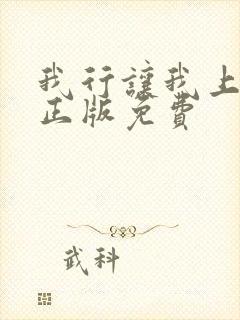 我行讓我上
正版免費
武科